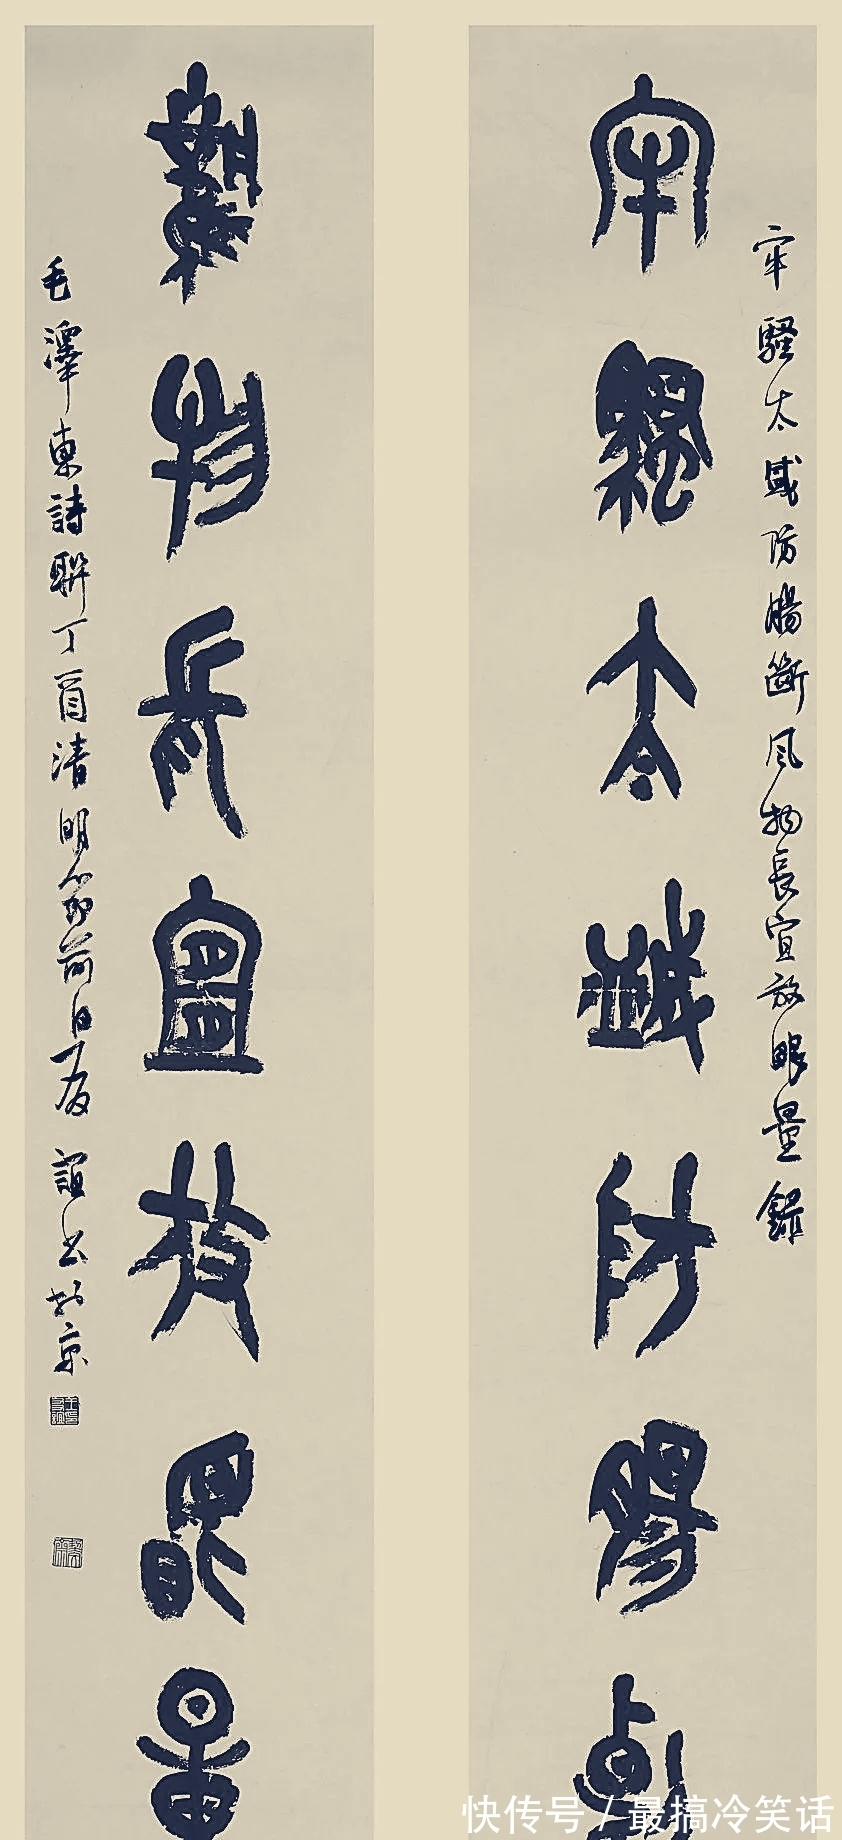 牢騷太盛防腸斷
牢騷太盛防腸斷風物長宜放眼量錄
風物長宜放眼量
毛澤東詩聯丁酉清明節前日誼书於京
快传号 / 最搞冷笑话